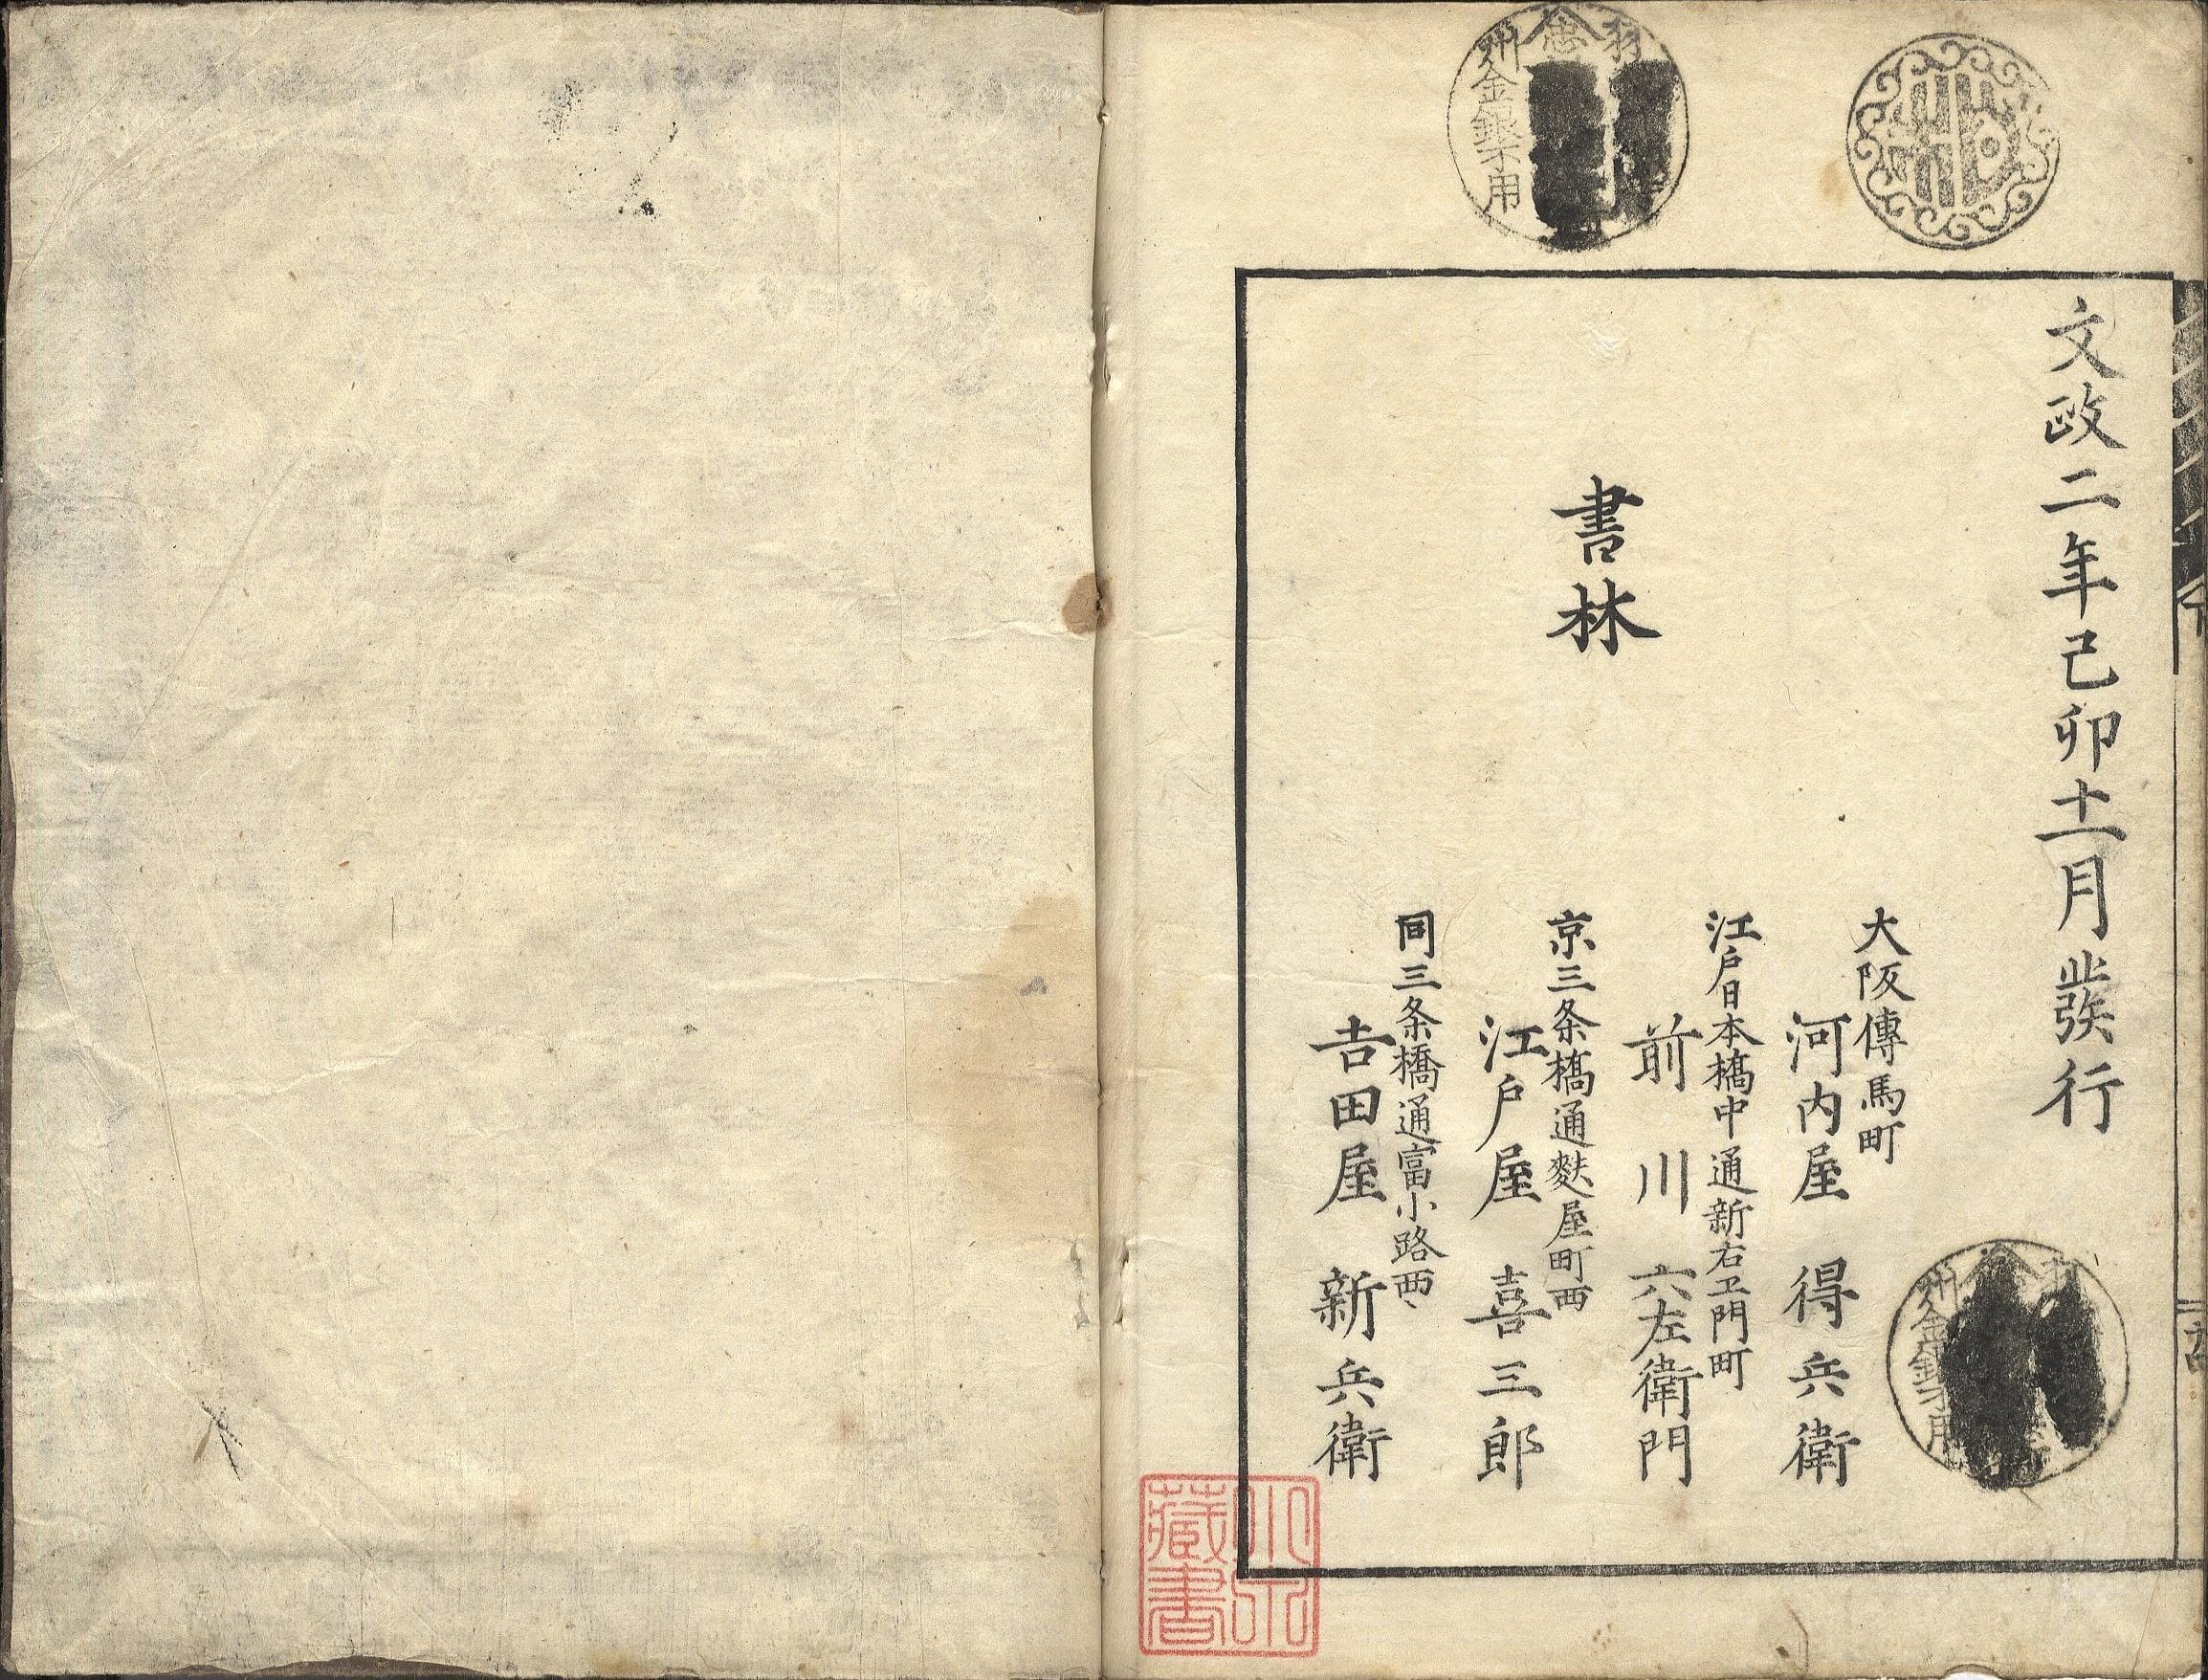 文政二年己卯十一月發行
書林
大阪傳馬町
河内屋 得兵衛
江戸日本橋中通新右エ門町
前川 六左衛門
京三条橋通麩屋町西
江戸屋 喜三郎
同三条橋通富小路西
吉田屋 新兵衛
羽
忠
州金銀不用
州金銀不用
藏書